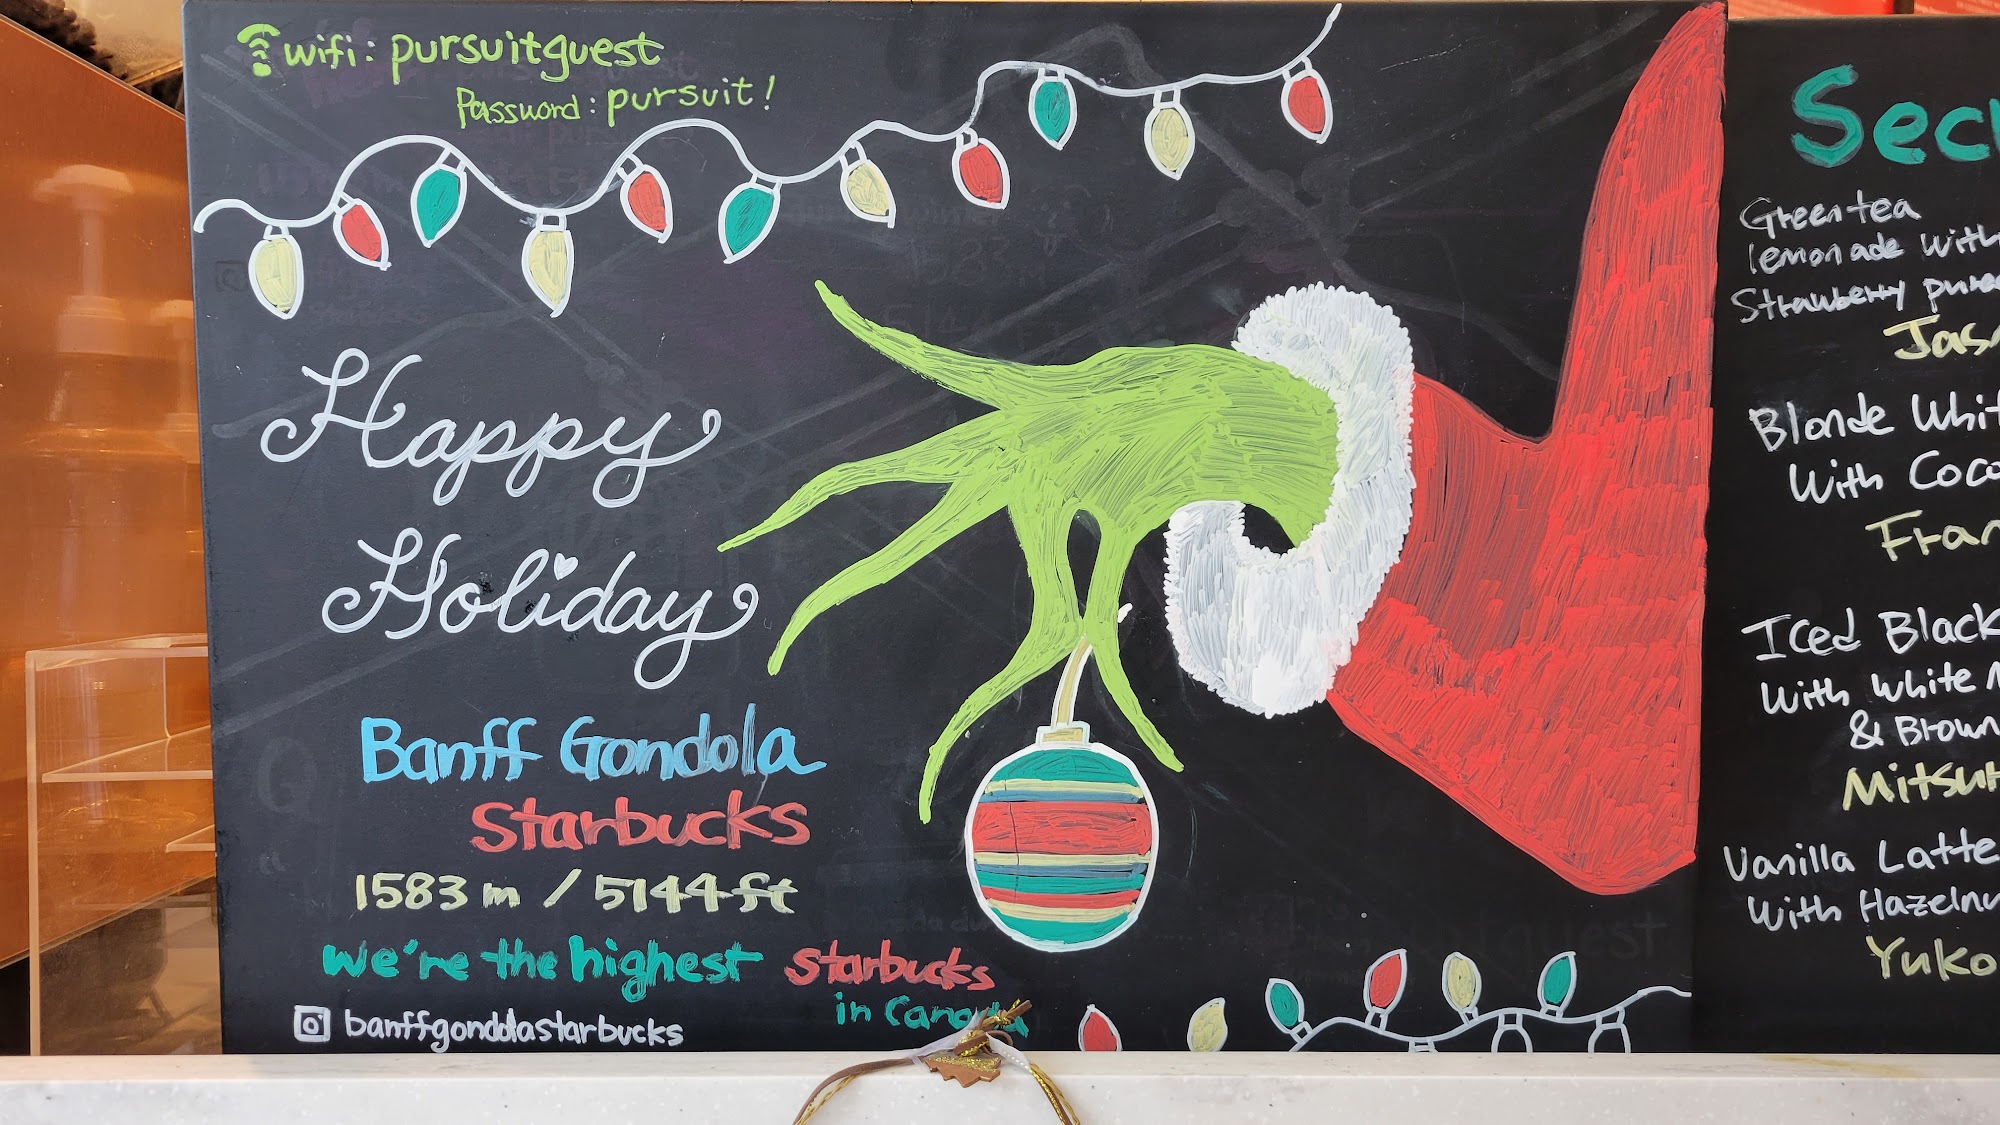 wifi: pursuitguest
Password: pursuit!
Happy
Holiday
Banff Gondola
Starbucks
1583 m / 5144 ft
we're the highest starbucks
in Canada
banffgondolastarbucks
Green tea
lemonade with
Strawberry
Blonde
With
Iced Black
With White
& Brown
Vanilla Latte
With
Yuko